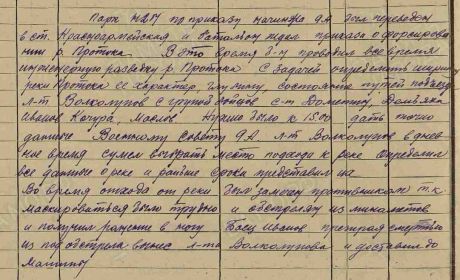 Парк №27 по приказу начинжа 9А был переведен
в ст. Красноармейская и батальон ждал приказа о форсирова
нии р. Протока. В это время б-н проводил все время
инженерную разведку р. Протока с задачей определить ширину
реки Протока её характер, глубину, состояние путей подхода
л-т Волколупов с группой бойцов с-т Дометид,
Иванов Качура, Маслов. Нужно было к 15.00 дать точно
данные Военному совету 9А. л-т Волколупов в днев
ное время сумел выбрать место подхода к реке определил
все данные о реке и раньше срока представил их
Во время отхода от реки был замечен противником т.к.
маскироваться было трудно и обстрелян из минометов
и получил ранение в ногу Боец Иванов презирая смерть
из под обстрела вынес л-та Волколупова и доставил до
машины